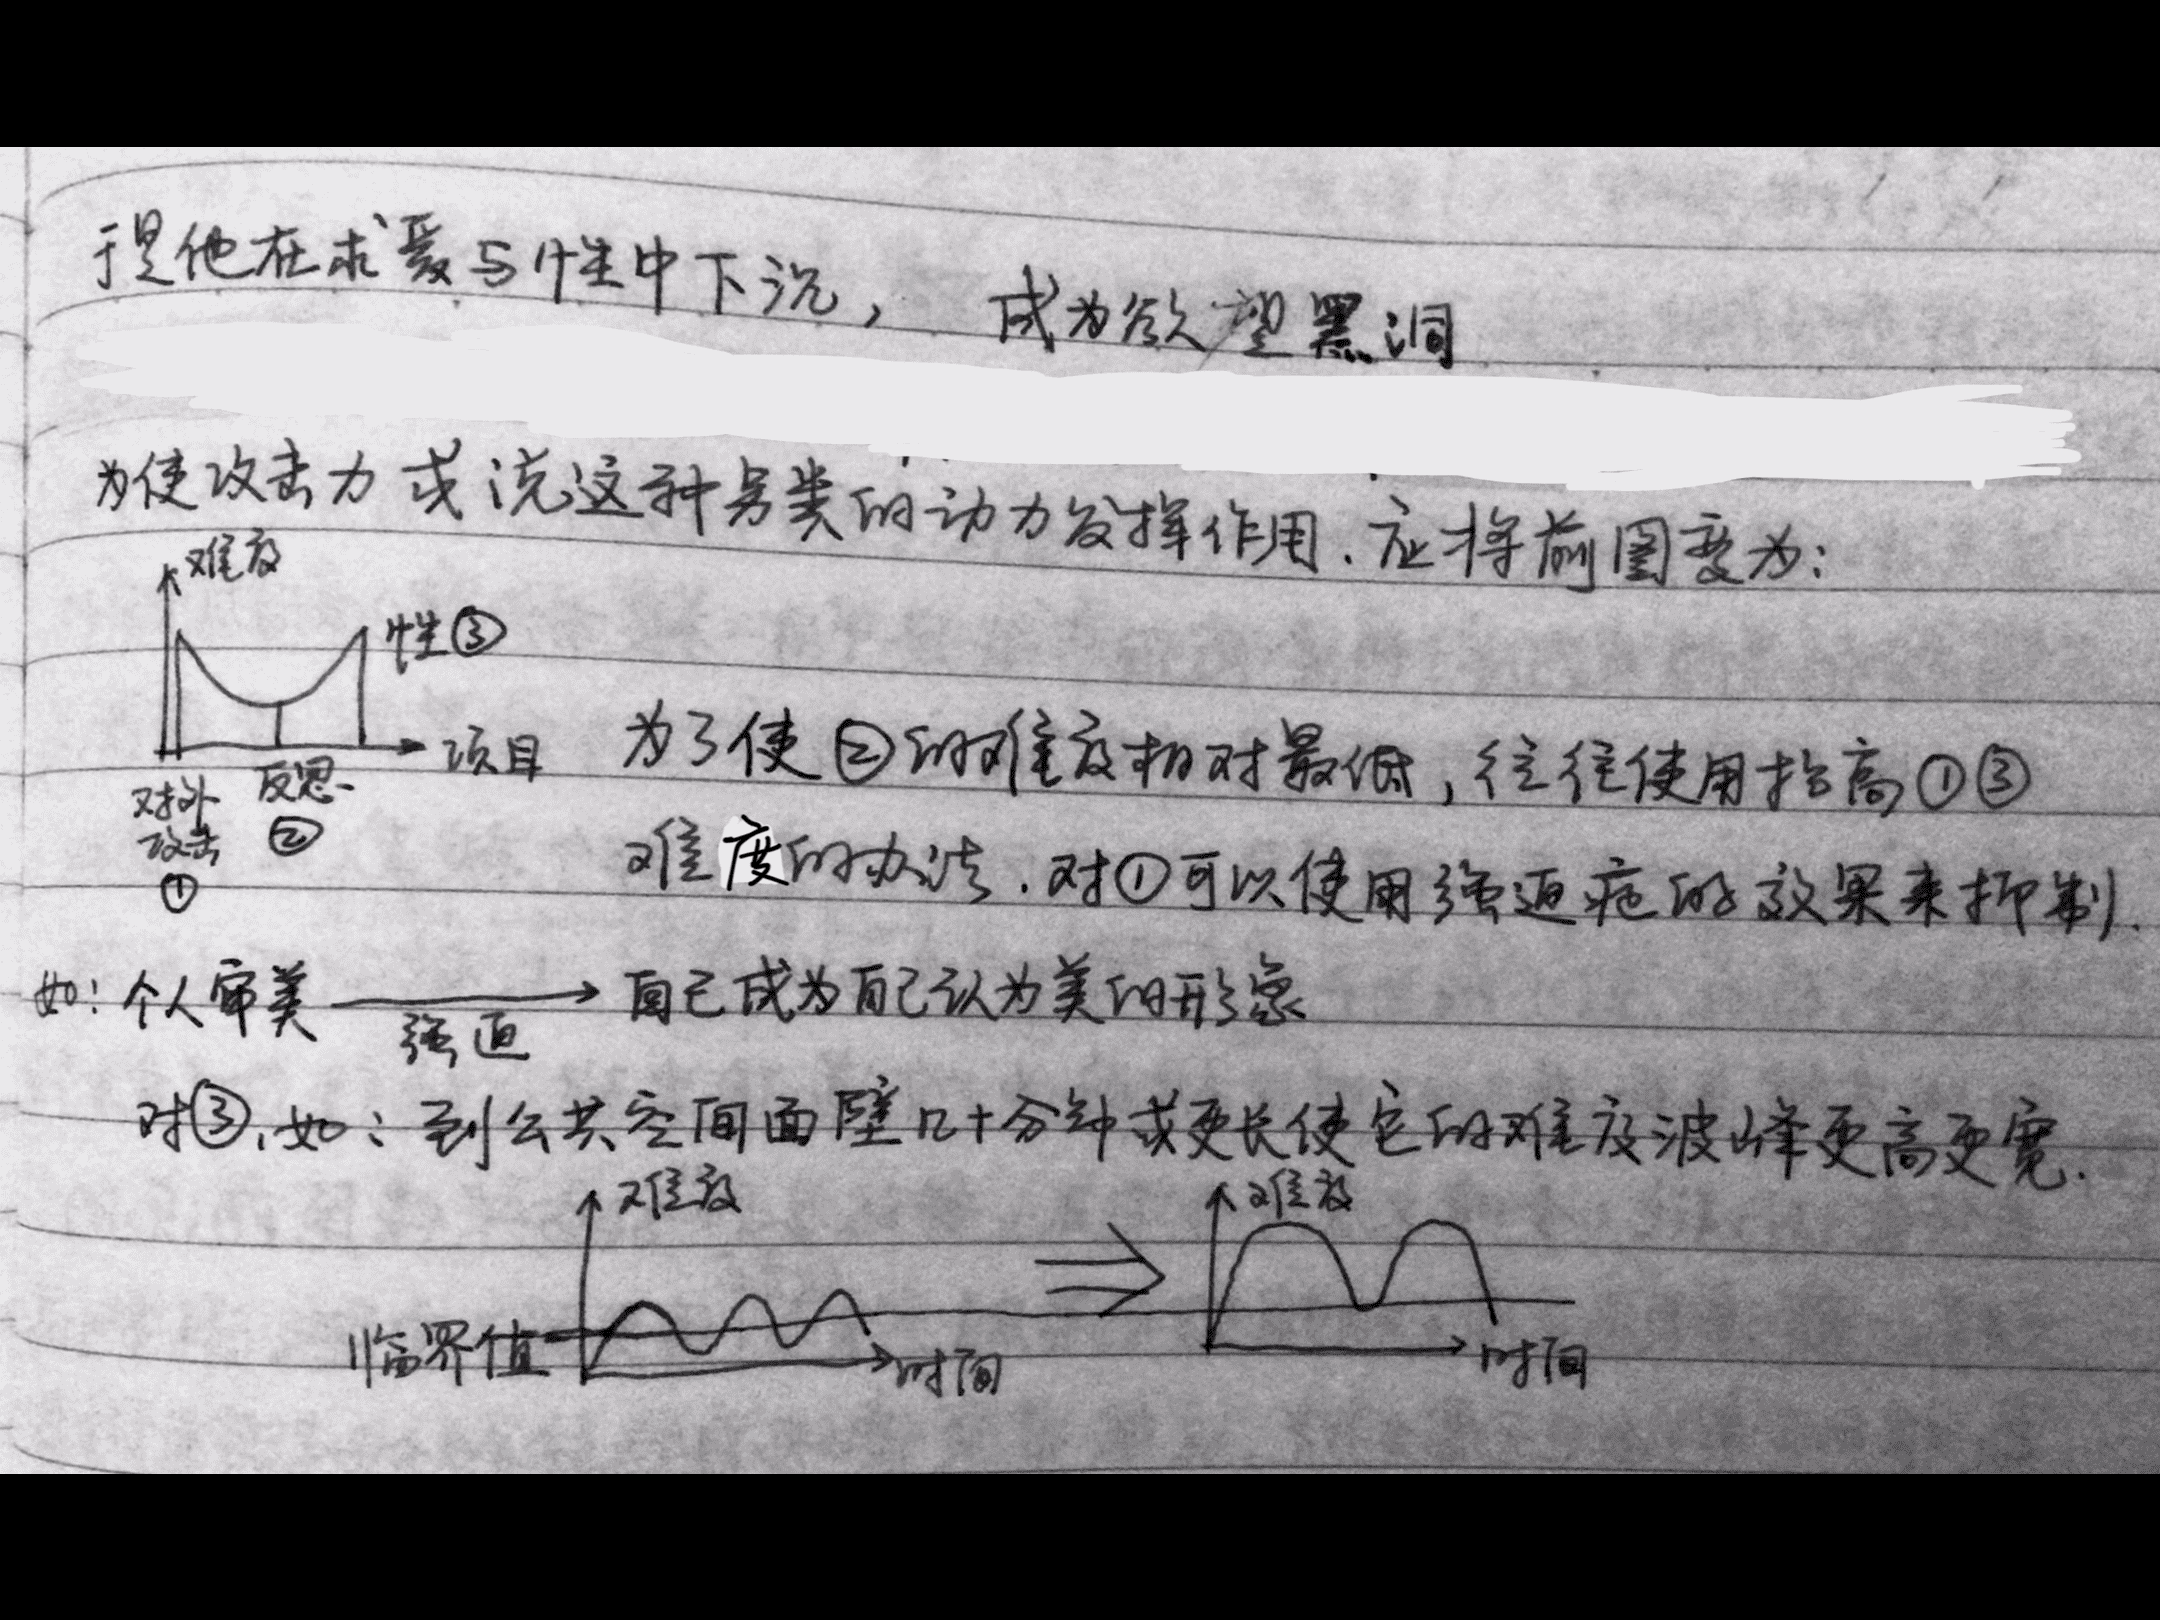 于是他在求爱与性中下沉，成为欲望黑洞
为使攻击力或说这种另类的动力发挥作用．应将前图变为：
难度
性③
项目
对外攻击
①
反思
②
为了使②的难度相对最低，往往使用抬高①③
难度的办法．对①可以使用强迫症的效果来抑制．
如：个人审美
强迫
自己成为自己认为美的形象
对③，如：到公共空间面壁几十分钟或更长使它的难度波峰更高更宽．
难度
临界值
时间
难度
时间